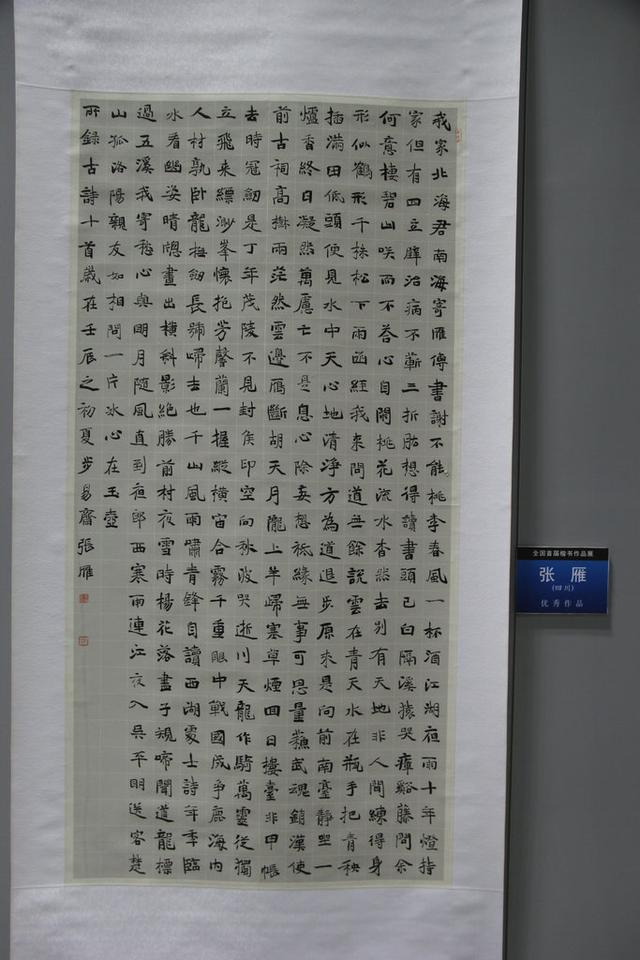 我家北海君南海寄雁傳書謝不能桃李春風一杯酒江湖夜雨十年燈持
家但有四立壁治病不蘄三折肱想得讀書頭已白隔溪猿哭瘴谿藤問余
何意棲碧山咲而不荅心自閑桃花流水杳然去別有天地非人間練得身
形似鶴形千株松下兩函經我来問道無餘説雲在青天水在瓶手把青秧
插滿田低頭便見水中天心地清淨方為道退步原来是向前南臺靜坐一
爐香終日凝然萬慮亡不是息心除妄想祗緣無事可思量蘇武魂銷漢使
前古祠高樹兩茫然雲邊鴈斷胡天月隴上羊歸塞草煙回日樓臺非甲帳
去時冠劒是丁年茂陵不見封侯印空向秋波哭逝川天龍作騎萬靈從獨
立飛来縹渺峯懷抱芳馨蘭一握縱橫宙合霧千重眼中戰國成爭鹿海內
人材孰卧龍撫劒長號歸去也千山風雨嘯青鋒自讀西湖處士詩年季臨
水看幽姿晴牕畫出橫斜影絕勝前村夜雪時楊花落盡子規啼聞道龍標
過五溪我寄愁心與明月隨風直到夜郎西寒雨連江夜入吳平明送客楚
山孤洛陽親友如相問一片冰心在玉壺
所録古詩十首歲在壬辰之初夏步易齋張雁
全国首届楷书作品展
张雁
(四川)
优秀作品